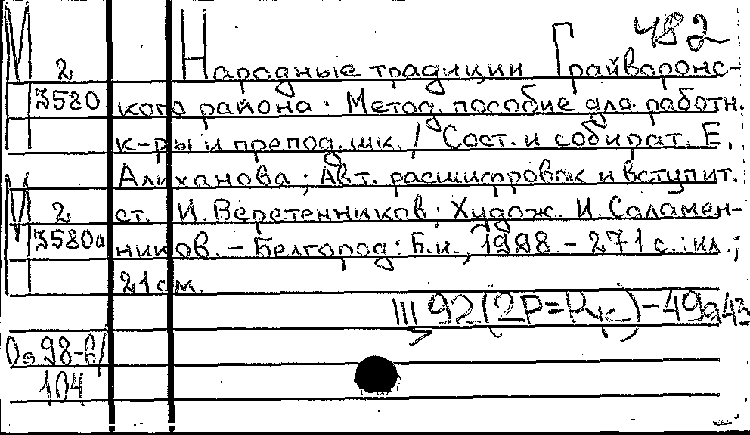 482
М 2 Народные традиции Грайворонс-
3580 кого района: Метод. пособие для работн.
к-ры и препод. шк. / Сост. и собират. Е.
Алиханова; Авт. расшифровок и вступит.
М 2 ст. И. Веретенников; Худож. И. Саламен-
3580а ников. – Белгород: Б.и., 1998 – 271 с.: ил.;
21 см.
Щ 92(2Р=Рус)–49я43
98-6/
104